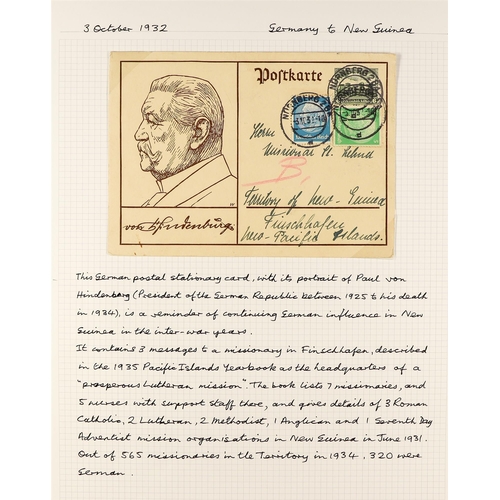 3 October 1932
Germany to New Guinea
Postkarte
NÜRNBERG 2
NÜRNBERG 2
Herrn
Missionar St. Lehner
B,
Territory of New-Guinea
Finschhafen
New-Pacific Islands.
von Hindenburg
This German postal stationary card, with its portrait of Paul von
Hindenburg (President of the German Republic between 1925 to his death
in 1934), is a reminder of continuing German influence in New
Guinea in the inter-war years.
It contains 3 messages to a missionary in Finschhafen, described
in the 1935 Pacific Islands Yearbook as the headquarters of a
"prosperous Lutheran mission". The book lists 7 missionaries, and
5 nurses with support staff there, and gives details of 3 Roman
Catholic, 2 Lutheran, 2 Methodist, 1 Anglican and 1 Seventh Day
Adventist mission organisations in New Guinea in June 1931.
Out of 565 missionaries in the Territory in 1934, 320 were
German.